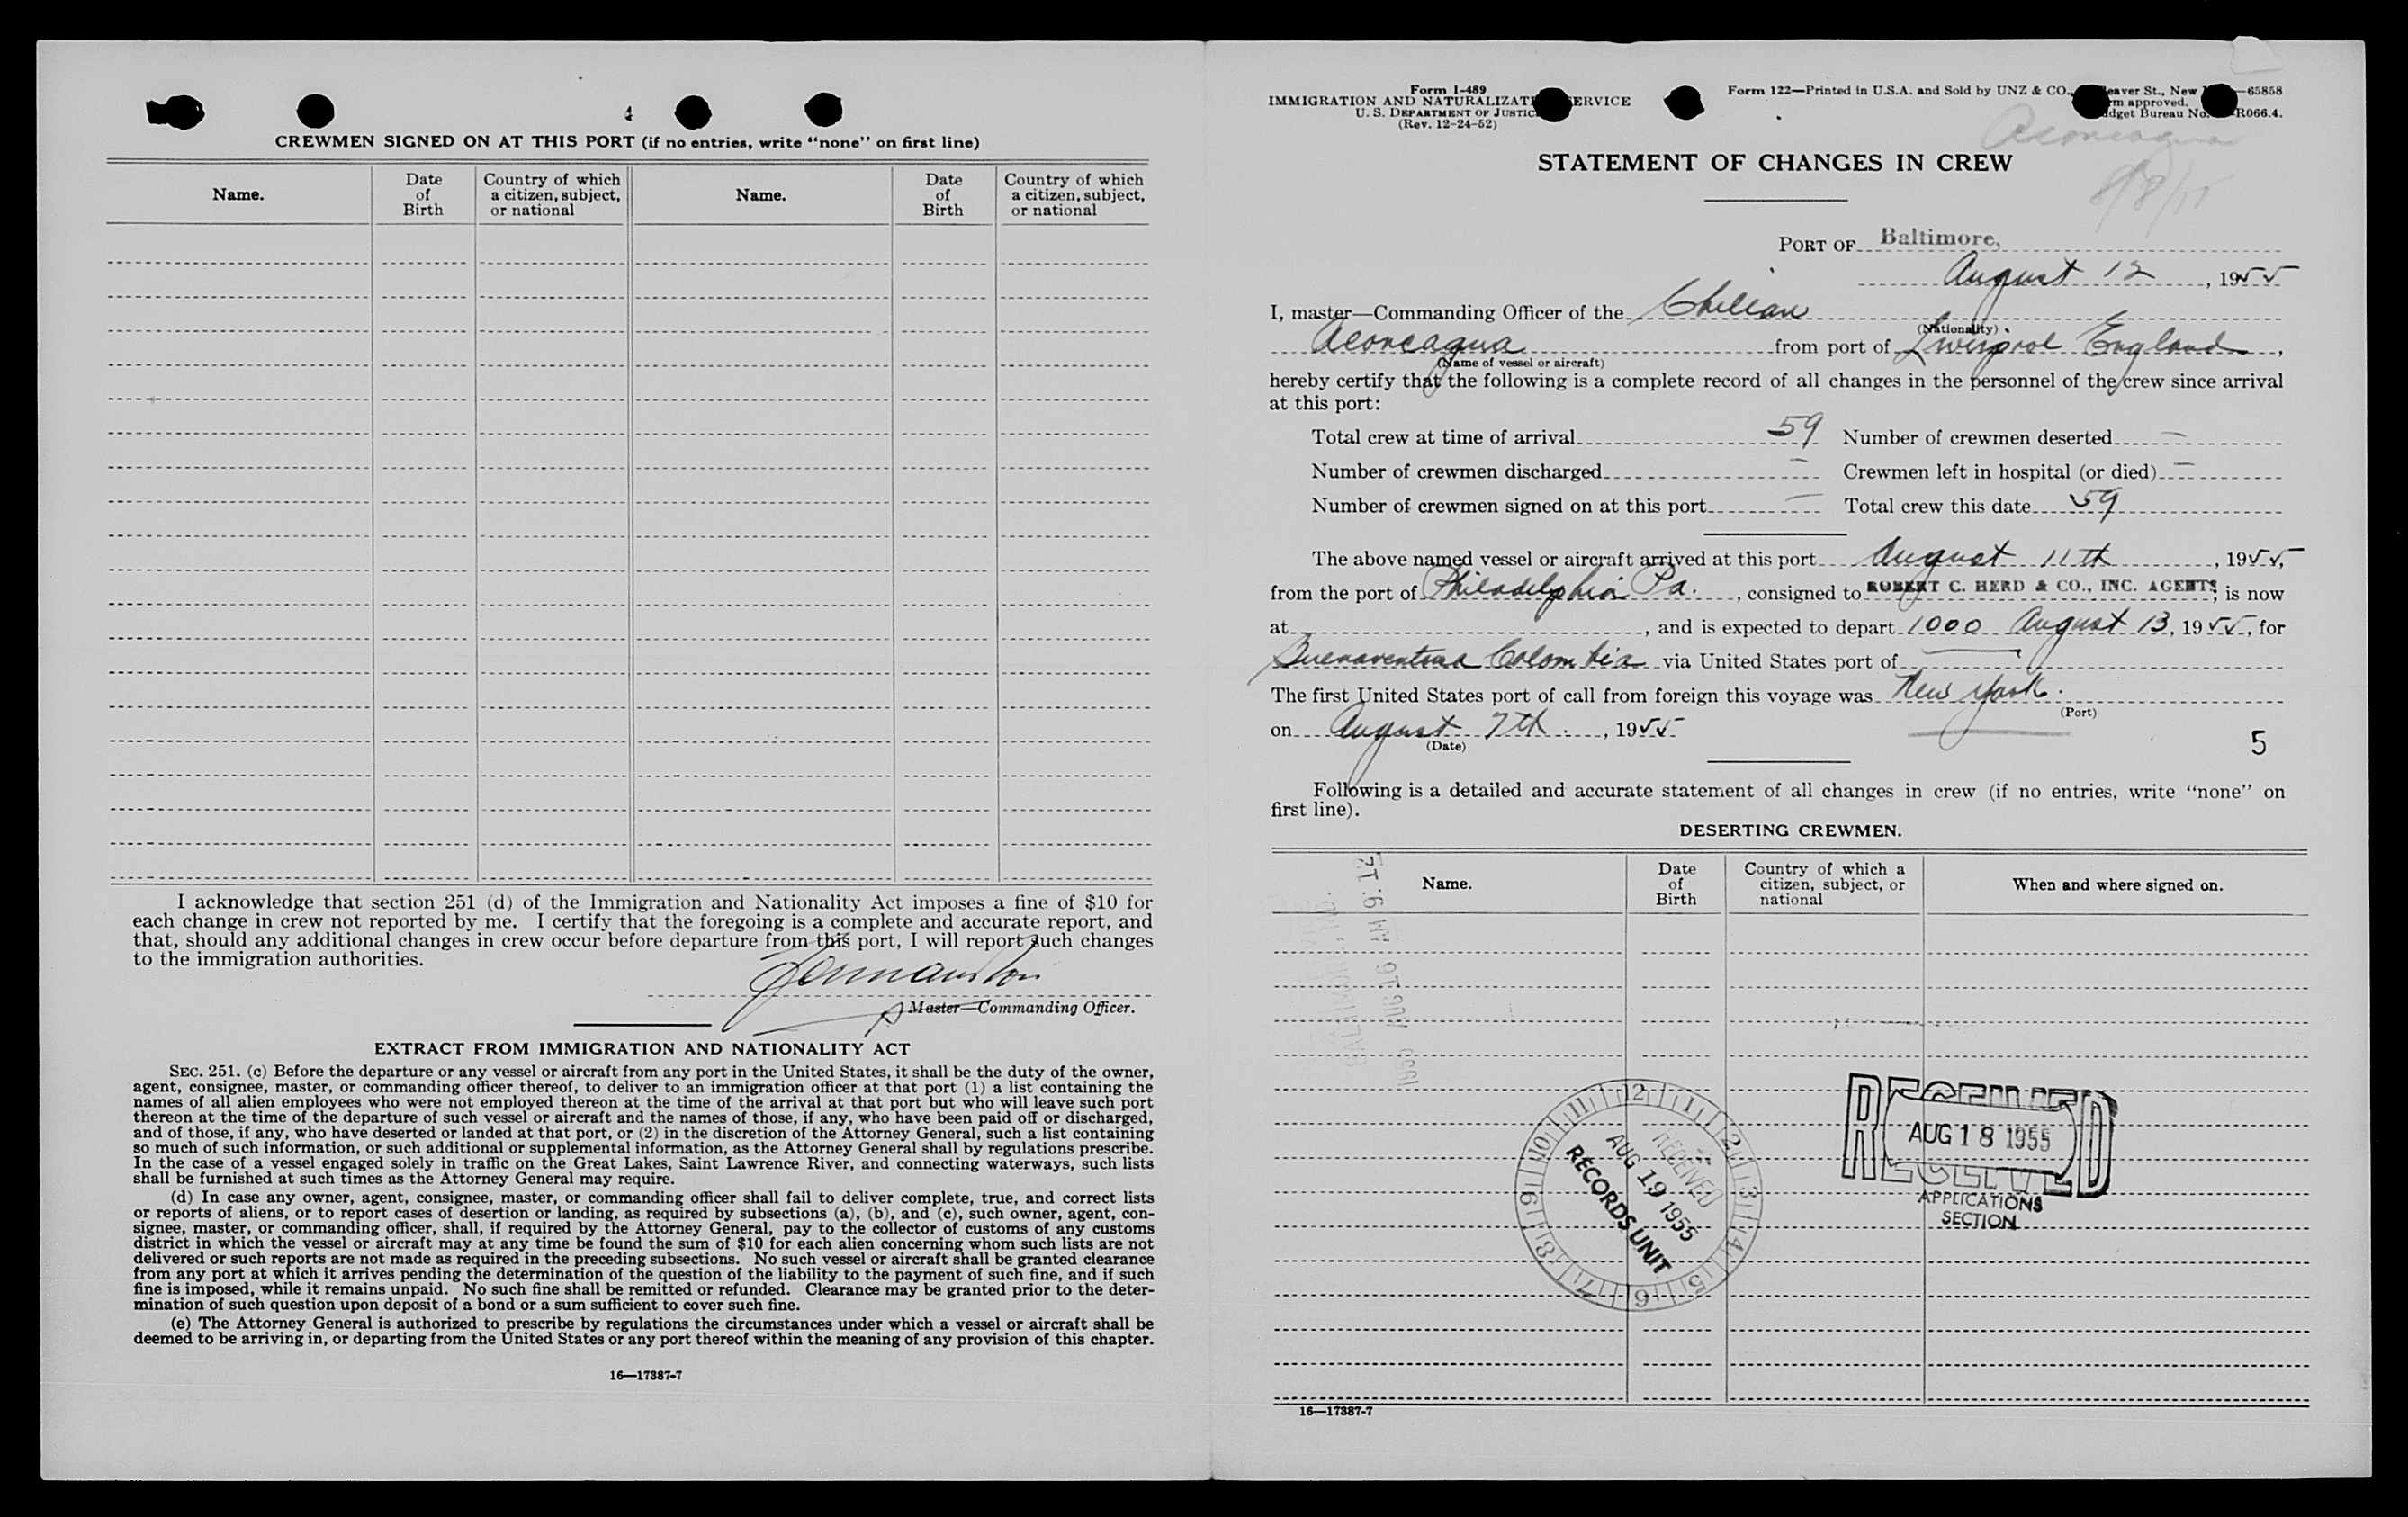 4
CREWMEN SIGNED ON AT THIS PORT (if no entries, write “none” on first line)
Name. Date of Birth Country of which a citizen, subject, or national Name. Date of Birth Country of which a citizen, subject, or national
I acknowledge that section 251 (d) of the Immigration and Nationality Act imposes a fine of $10 for
each change in crew not reported by me. I certify that the foregoing is a complete and accurate report, and
that, should any additional changes in crew occur before departure from this port, I will report such changes
to the immigration authorities.
Master—Commanding Officer.
EXTRACT FROM IMMIGRATION AND NATIONALITY ACT
SEC. 251. (c) Before the departure or any vessel or aircraft from any port in the United States, it shall be the duty of the owner,
agent, consignee, master, or commanding officer thereof, to deliver to an immigration officer at that port (1) a list containing the
names of all alien employees who were not employed thereon at the time of the arrival at that port but who will leave such port
thereon at the time of the departure of such vessel or aircraft and the names of those, if any, who have been paid off or discharged,
and of those, if any, who have deserted or landed at that port, or (2) in the discretion of the Attorney General, such a list containing
so much of such information, or such additional or supplemental information, as the Attorney General shall by regulations prescribe.
In the case of a vessel engaged solely in traffic on the Great Lakes, Saint Lawrence River, and connecting waterways, such lists
shall be furnished at such times as the Attorney General may require.
(d) In case any owner, agent, consignee, master, or commanding officer shall fail to deliver complete, true, and correct lists
or reports of aliens, or to report cases of desertion or landing, as required by subsections (a), (b), and (c), such owner, agent, con-
signee, master, or commanding officer, shall, if required by the Attorney General, pay to the collector of customs of any customs
district in which the vessel or aircraft may at any time be found the sum of $10 for each alien concerning whom such lists are not
delivered or such reports are not made as required in the preceding subsections. No such vessel or aircraft shall be granted clearance
from any port at which it arrives pending the determination of the question of the liability to the payment of such fine, and if such
fine is imposed, while it remains unpaid. No such fine shall be remitted or refunded. Clearance may be granted prior to the deter-
mination of such question upon deposit of a bond or a sum sufficient to cover such fine.
(e) The Attorney General is authorized to prescribe by regulations the circumstances under which a vessel or aircraft shall be
deemed to be arriving in, or departing from the United States or any port thereof within the meaning of any provision of this chapter.
16—17387-7
Form I-489
IMMIGRATION AND NATURALIZATI ERVICE
U. S. DEPARTMENT OF JUSTIC
(Rev. 12-24-52)
Form 122—Printed in U.S.A. and Sold by UNZ & CO., eaver St., New —65858
rm approved.
dget Bureau No. R066.4.
Aconcagua
8/8/55
STATEMENT OF CHANGES IN CREW
PORT OF Baltimore,
August 12, 1955
I, master—Commanding Officer of the Chilean
(Nationality)
Aconcagua from port of Liverpool England,
(Name of vessel or aircraft)
hereby certify that the following is a complete record of all changes in the personnel of the crew since arrival
at this port:
Total crew at time of arrival 59 Number of crewmen deserted —
Number of crewmen discharged — Crewmen left in hospital (or died) —
Number of crewmen signed on at this port — Total crew this date 59
The above named vessel or aircraft arrived at this port August 11th, 1955,
from the port of Philadelphia Pa., consigned to ROBERT C. HERD & CO., INC. AGENTS; is now
at , and is expected to depart 1000 August 13, 1955, for
Buenaventura Colombia via United States port of —
The first United States port of call from foreign this voyage was New York.
(Port)
on August 7th, 1955
(Date)
5
Following is a detailed and accurate statement of all changes in crew (if no entries, write “none” on
first line).
DESERTING CREWMEN.
Name. Date of Birth Country of which a citizen, subject, or national When and where signed on.
1955 AUG 16 AM 9:12
RECEIVED
AUG 19 1955
RECORDS UNIT
12 1 2 3 4 5 6 7 8 9 10 11
RECEIVED
AUG 18 1955
APPLICATIONS
SECTION
16—17387-7